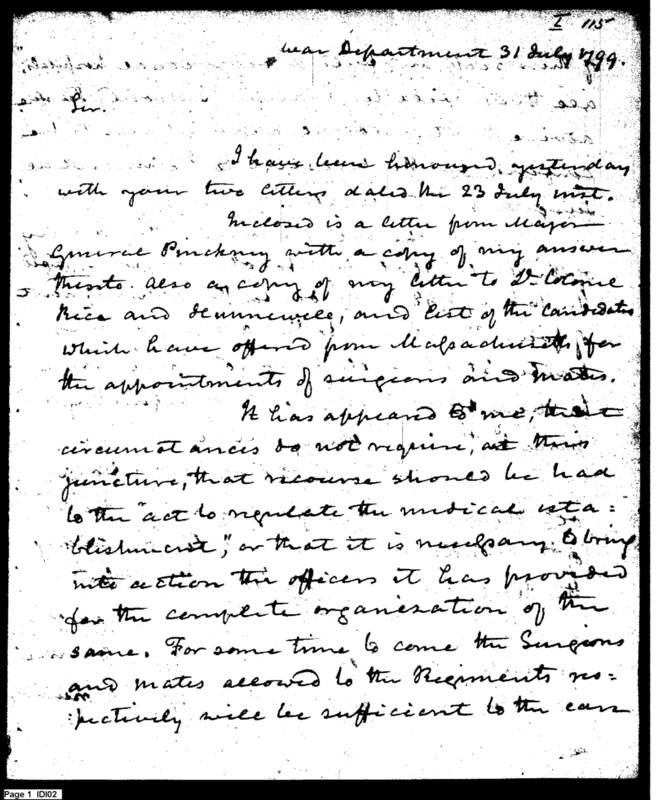 I 115
War Department 31 July 1799.
Sir.
I have been honoured, yesterday
with your two letters dated the 23 July inst.
Inclosed is a letter from Major
General Pinckney with a copy of my answer
thereto. Also a copy of my letter to Lt. Colonel
Rice and Hunnewell, and list of the Candidates
which have offered from Massachusetts, for
the appointments of surgeons and mates.
It has appeared to me, that
circumstances do not require, at this
juncture, that recourse should be had
to the "act to regulate the medical esta=
blishment," or that it is necessary to bring
into action the officers it has provided
for the complete organization of the
same. For some time to come the Surgeons
and mates allowed to the Regiments res=
pectively will be sufficient to the care
Page 1 IDI02